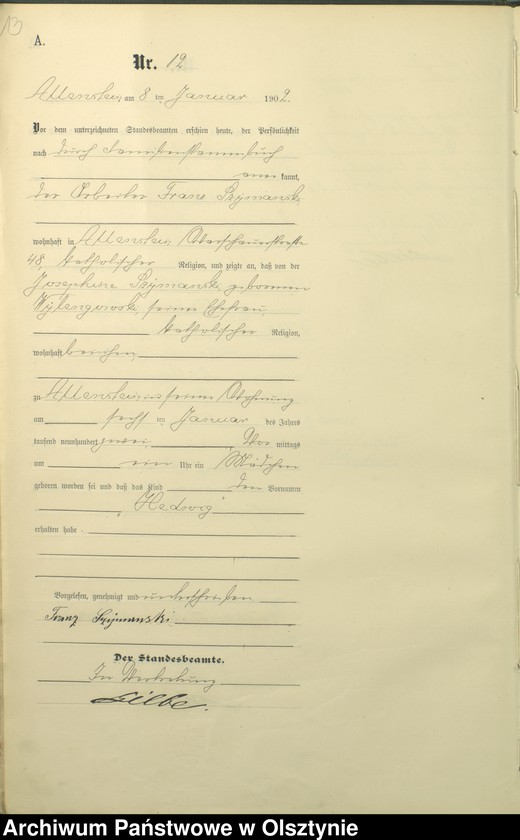 13
A.
Nr. 12
Allenstein, am 8 ten Januar 1902.
Vor dem unterzeichneten Standesbeamten erschien heute, der Persönlichkeit
nach durch Familienstammbuch
anerkannt,
der Arbeiter Franz Szymanski
wohnhaft in Allenstein,
48, katholischer Religion, und zeigte an, daß von der
Josephine Szymanski geborenen
seiner Ehefrau,
katholischer Religion,
wohnhaft bei ihm,
zu Allenstein in seiner Wohnung
am sechsten Januar des Jahres
tausend neunhundert zwei, Vor mittags
um ein Uhr ein Mädchen
geboren worden sei und daß das Kind den Vornamen
Hedwig
erhalten habe
Vorgelesen, genehmigt und unterschrieben
Franz Szymanski
Der Standesbeamte.
In Vertretung
Archiwum Państwowe w Olsztynie